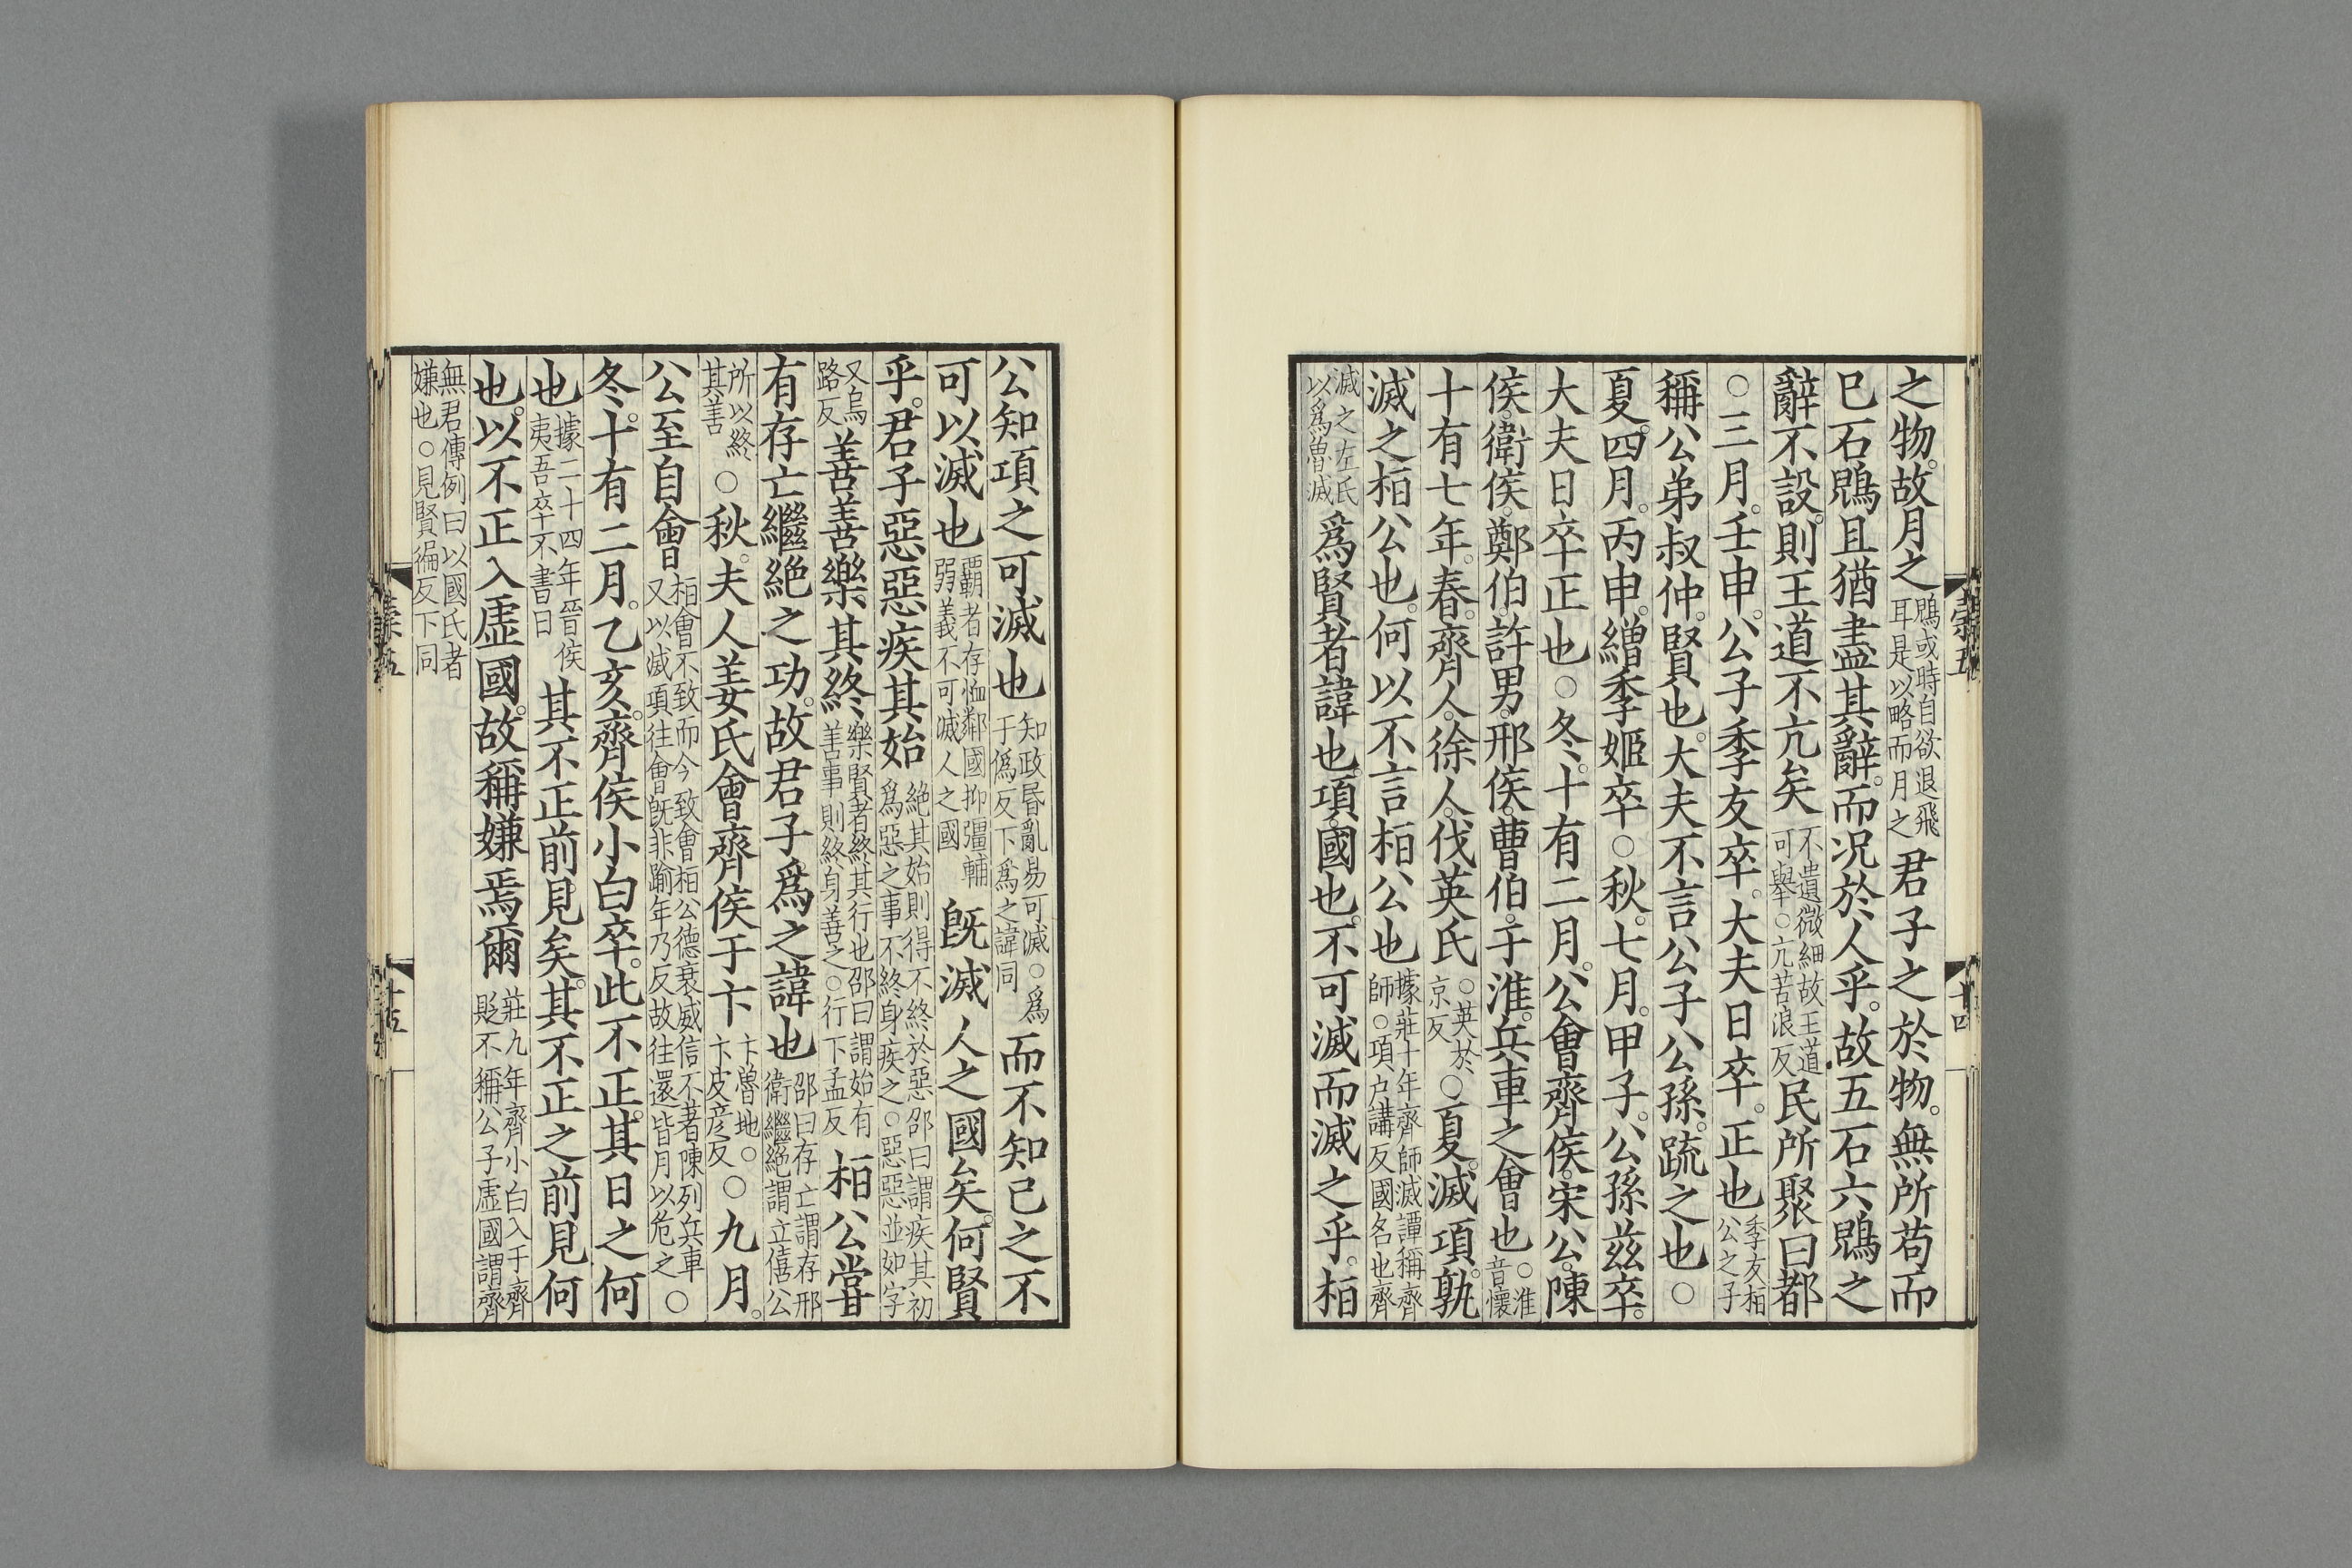 之物。故月之鶂或時自欲退飛耳是以略而月之君子之於物。無所苟而
已石鶂且猶盡其辭。而况於人乎。故五石六鶂之
辭不設。則王道不亢矣不遺微細故王道可舉○亢苦浪反民所聚曰都
○三月。壬申。公子季友卒。大夫日卒。正也季友桓公之子
稱公弟叔仲。賢也。大夫不言公子公孫。疏之也○
夏。四月。丙申。繒季姬卒○秋。七月。甲子。公孫茲卒。
大夫日卒正也○冬。十有二月。公會齊侯。宋公。陳
侯。衛侯。鄭伯。許男。邢侯。曹伯。于淮。兵車之會也○淮音懷
十有七年。春。齊人。徐人。伐英氏○英於京反○夏。滅項。孰
滅之桓公也。何以不言桓公也據莊十年齊師滅譚稱齊師○項户講反國名也齊
滅之左氏以爲魯滅爲賢者諱也。項。國也。不可滅而滅之乎。桓
公知項之可滅也知政昏亂易可滅○爲于僞反下爲之諱同而不知己之不
可以滅也霸者存恤鄰國抑彊輔弱義不可滅人之國旣滅人之國矣。何賢
乎。君子惡惡疾其始絶其始則得不終於惡邵曰謂疾其初爲惡之事不終身疾之○惡惡並如字
又烏路反善善樂其終樂賢者終其行也邵曰謂始有善事則終身善之○行下孟反桓公嘗
有存亡繼絶之功。故君子爲之諱也邵曰存亡謂存邢衛繼絶謂立僖公
所以終其善○秋。夫人姜氏會齊侯于卞卞魯地○卞皮彦反○九月。
公至自會桓會不致而今致會桓公德衰威信不著陳列兵車又以滅項往會旣非踰年乃反故往還皆月以危之○
冬。十有二月。乙亥。齊侯小白卒。此不正。其日之何
也據二十四年晉侯夷吾卒不書日其不正前見矣。其不正之前見何
也。以不正入虛國。故稱嫌焉爾莊九年齊小白入于齊貶不稱公子虛國謂齊
無君傳例曰以國氏者嫌也○見賢徧反下同